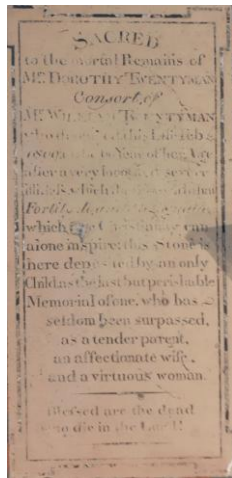 SACRED
to the mortal Remains of
Mrs. DOROTHY TWENTYMAN
Consort of
Mr. WILLIAM TWENTYMAN
who
year of her Age
after a very
illness which
Fortitude
which Christianity can
alone inspire this Stone is
here deposited by an only
Child, as the last but perishable
Memorial of one, who has
seldom been surpassed,
as a tender parent,
an affectionate wife,
and a virtuous woman.
Blessed are the dead
who die in the Lord